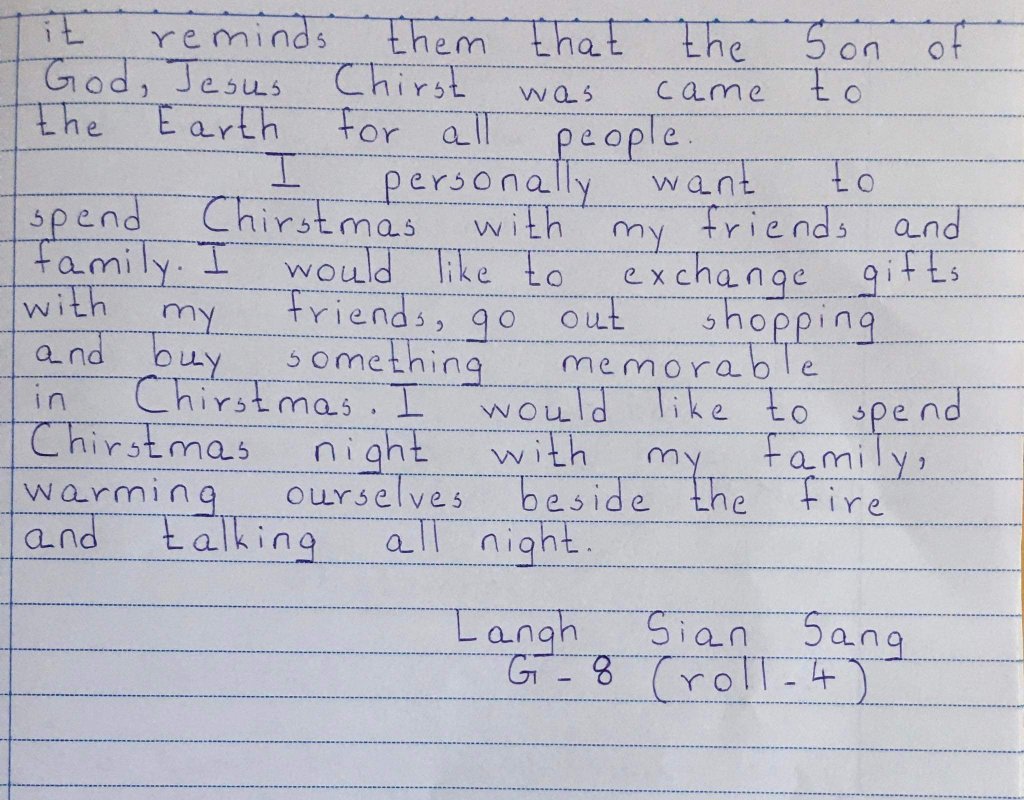 it reminds them that the Son of
God, Jesus Chirst was came to
the Earth for all people.
I personally want to
spend Chirstmas with my friends and
family. I would like to exchange gifts
with my friends, go out shopping
and buy something memorable
in Chirstmas. I would like to spend
Chirstmas night with my family,
warming ourselves beside the fire
and talking all night.
Langh Sian Sang
G - 8 (roll - 4)